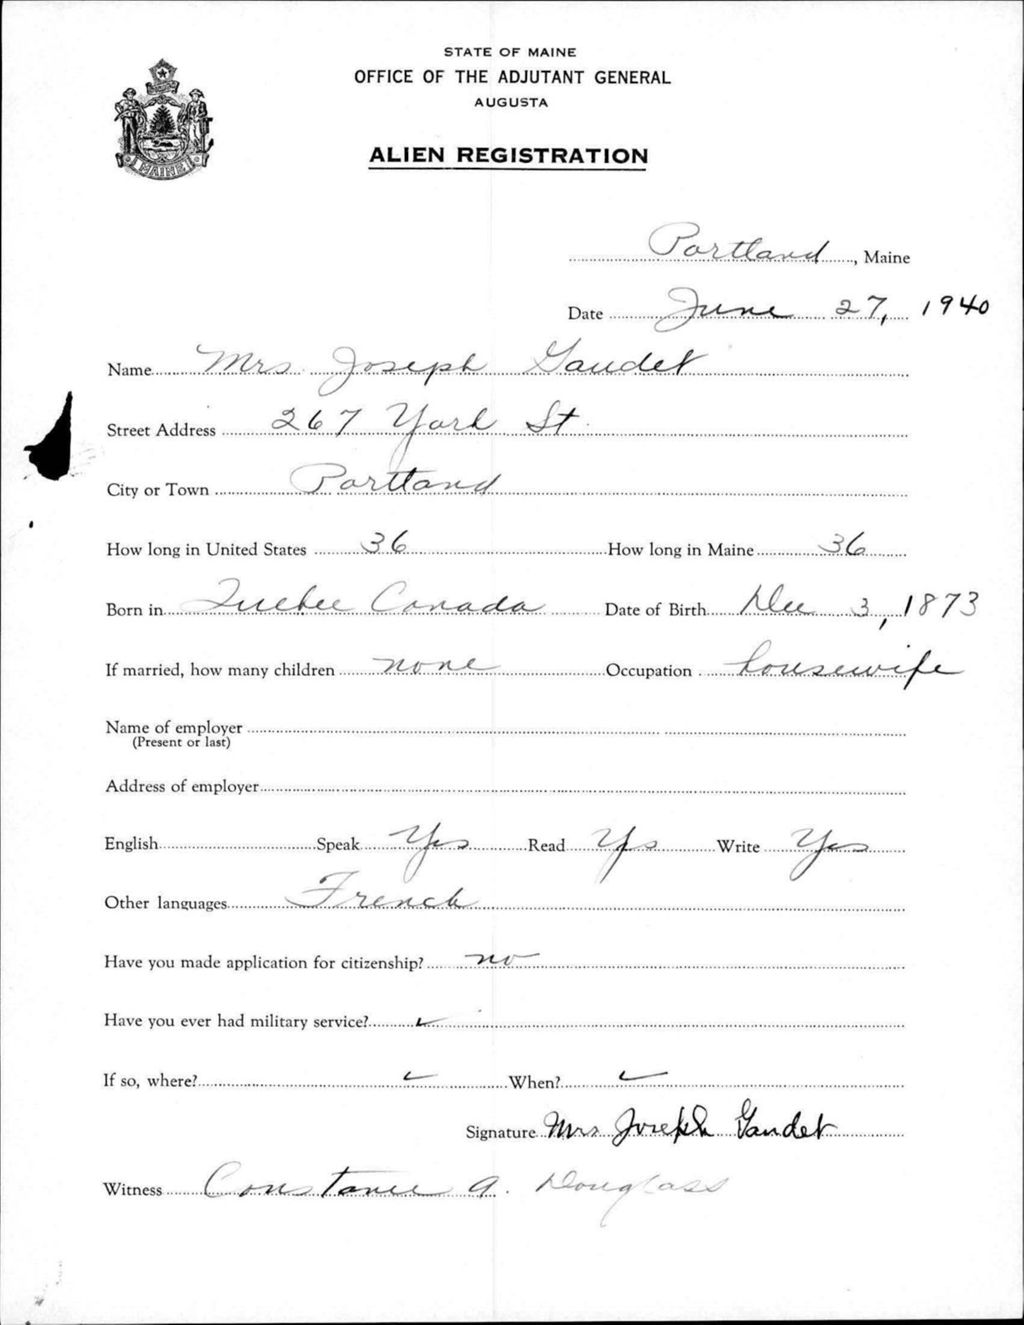 STATE OF MAINE
OFFICE OF THE ADJUTANT GENERAL
AUGUSTA
MAINE
ALIEN REGISTRATION
Portland, Maine
Date June 27, 1940
Name Mrs Joseph Gaudet
Street Address 267 York St.
City or Town Portland
How long in United States 36 How long in Maine 36
Born in Quebec Canada Date of Birth Dec 3, 1873
If married, how many children none Occupation housewife
Name of employer
(Present or last)
Address of employer
English Speak Yes Read Yes Write Yes
Other languages French
Have you made application for citizenship? no
Have you ever had military service? ✓
If so, where? ✓ When? ✓
Signature Mrs Joseph Gaudet
Witness Constance A. Douglass